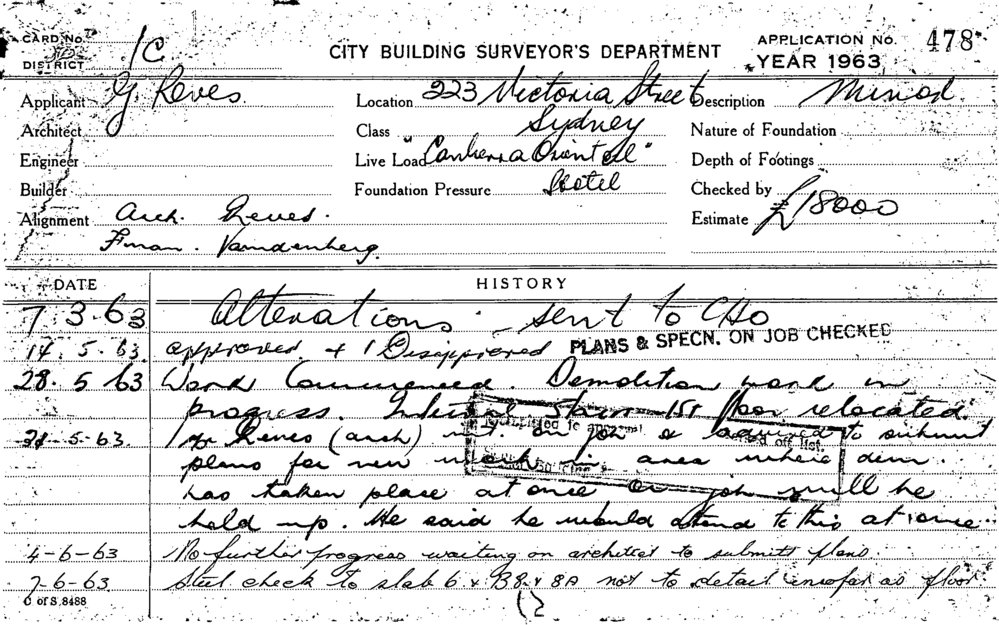 CARD No. 1C
DISTRICT
CITY BUILDING SURVEYOR'S DEPARTMENT
APPLICATION No. 478
YEAR 1963
Applicant G Reves
Location 223 Victoria Street
Description Minor
Architect
Class Sydney
Nature of Foundation
Engineer
Live Load "Canberra Oriental"
Depth of Footings
Builder
Foundation Pressure Hotel
Checked by
Alignment Arch. Reves.
Estimate £18000
Fman. Vanndenberg.
DATE HISTORY
7.3.63 Alterations. sent to CHO
14.5.63. approved + 1 Disapproved PLANS & SPECN. ON JOB CHECKED
28.5 63 Work Commenced. Demolition work in
progress. Internal Stair 1st floor relocated.
28-5-63. Mr Reves (arch) met on job & to submit
plans for new work in area where dem.
has taken place at once or job will be
held up. He said he would attend to this at once.
4-6-63 No further progress waiting on architect to submit plans.
7-6-63. Steel check to slab 6 & B8 & 8A not to detail insofar as floor
C of S. 8488